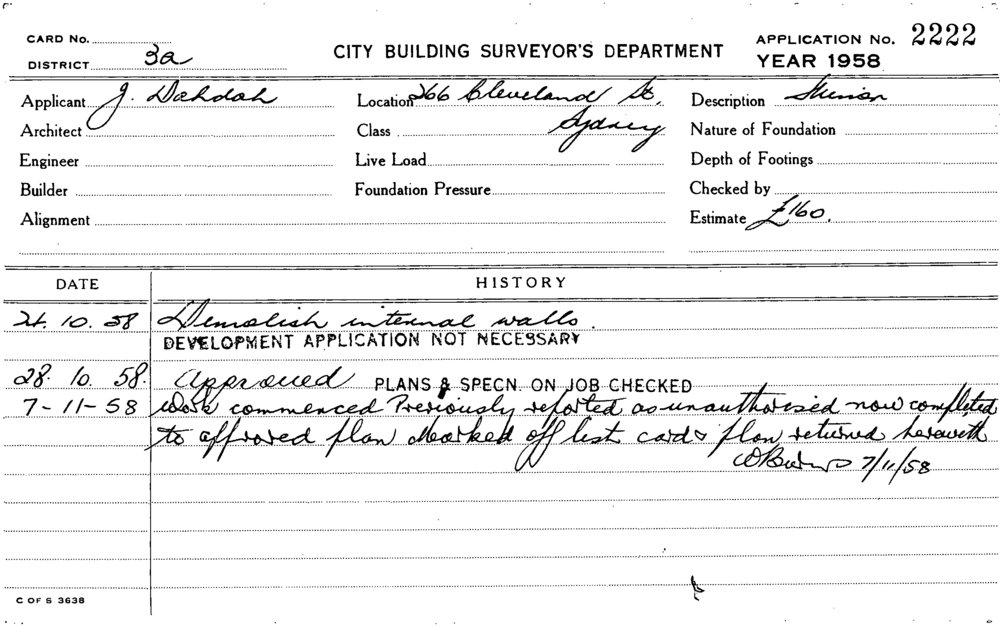 CARD No.
DISTRICT 3a
CITY BUILDING SURVEYOR'S DEPARTMENT
APPLICATION No. 2222
YEAR 1958
Applicant J. Dahdah
Location 266 Cleveland St,
Sydney
Description
Architect
Class
Nature of Foundation
Engineer
Live Load
Depth of Footings
Builder
Foundation Pressure
Checked by
Alignment
Estimate £160.
DATE HISTORY
21. 10. 58 Demolish internal walls.
DEVELOPMENT APPLICATION NOT NECESSARY
28. 10. 58. Approved PLANS & SPECN. ON JOB CHECKED
7-11-58 Work commenced Previously reported as unauthorised now completed
to approved plan Marked off list card & plan returned herewith
7/11/58
C OF S 3638